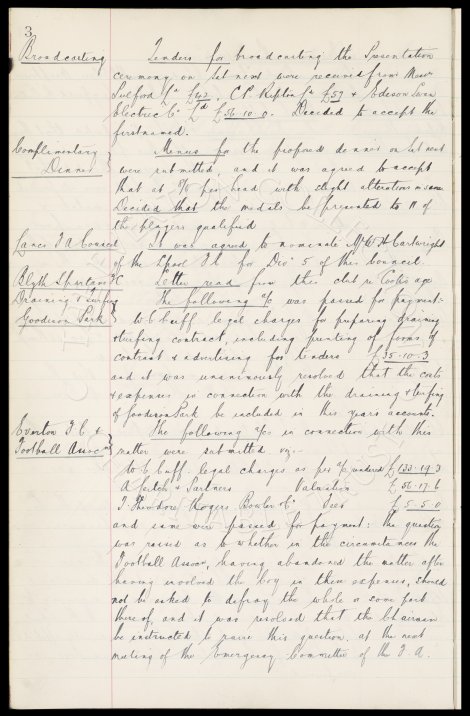 3
Broadcasting Tenders for broadcasting the Presentation
ceremony on Sat next were received from Messrs
Sulford Ld £42, C.P. Kipton Ld £57 & Edison Swan
Electric Co Ld £56.10.0. Decided to accept the
firstnamed.
Complimentary Menus for the proposed dinner on Sat next
Dinner were submitted, and it was agreed to accept
that at per head with slight alterations in same
Decided that the medals be presented to 11 of
the players qualified
Lancs F A Council It was agreed to nominate Mr W H Cartwright
of the L'pool F.C. for Div 5 of this Council.
Blyth Spartans F.C Letter read from this club re Cook's age
Draining & turfing The following a/c was passed for payment:
Goodison Park W C Cuff legal charges for preparing draining
& turfing contract, including printing of forms of
contract & advertising for tenders £35.10.3
and it was unanimously resolved that the costs
& expenses in connection with the draining & turfing
of Goodison Park be included in this years accounts.
Everton F.C. & The following a/cs in connection with this
Football Assocn matter were submitted viz:-
W C Cuff. legal charges as per a/c rendered £133.19.3
A Leitch & Partners Valuation £56.17.6
T. Theodore Rogers Bowler & Co Fees £5.5.0
and same were passed for payment: the question
was raised as to whether in the circumstances the
Football Assocn, having abandoned the matter after
having involved the Coy in these expenses, should
not be asked to defray the whole or some part
thereof, and it was resolved that the Chairman
be instructed to raise this question, at the next
meeting of the Emergency Committee of the F.A.